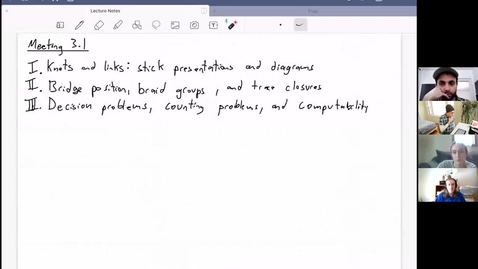 Lecture Notes
Meeting 3.1
I. Knots and links: stick presentations and diagrams
II. Bridge position, braid groups, and trace closures
III. Decision problems, counting problems, and computability